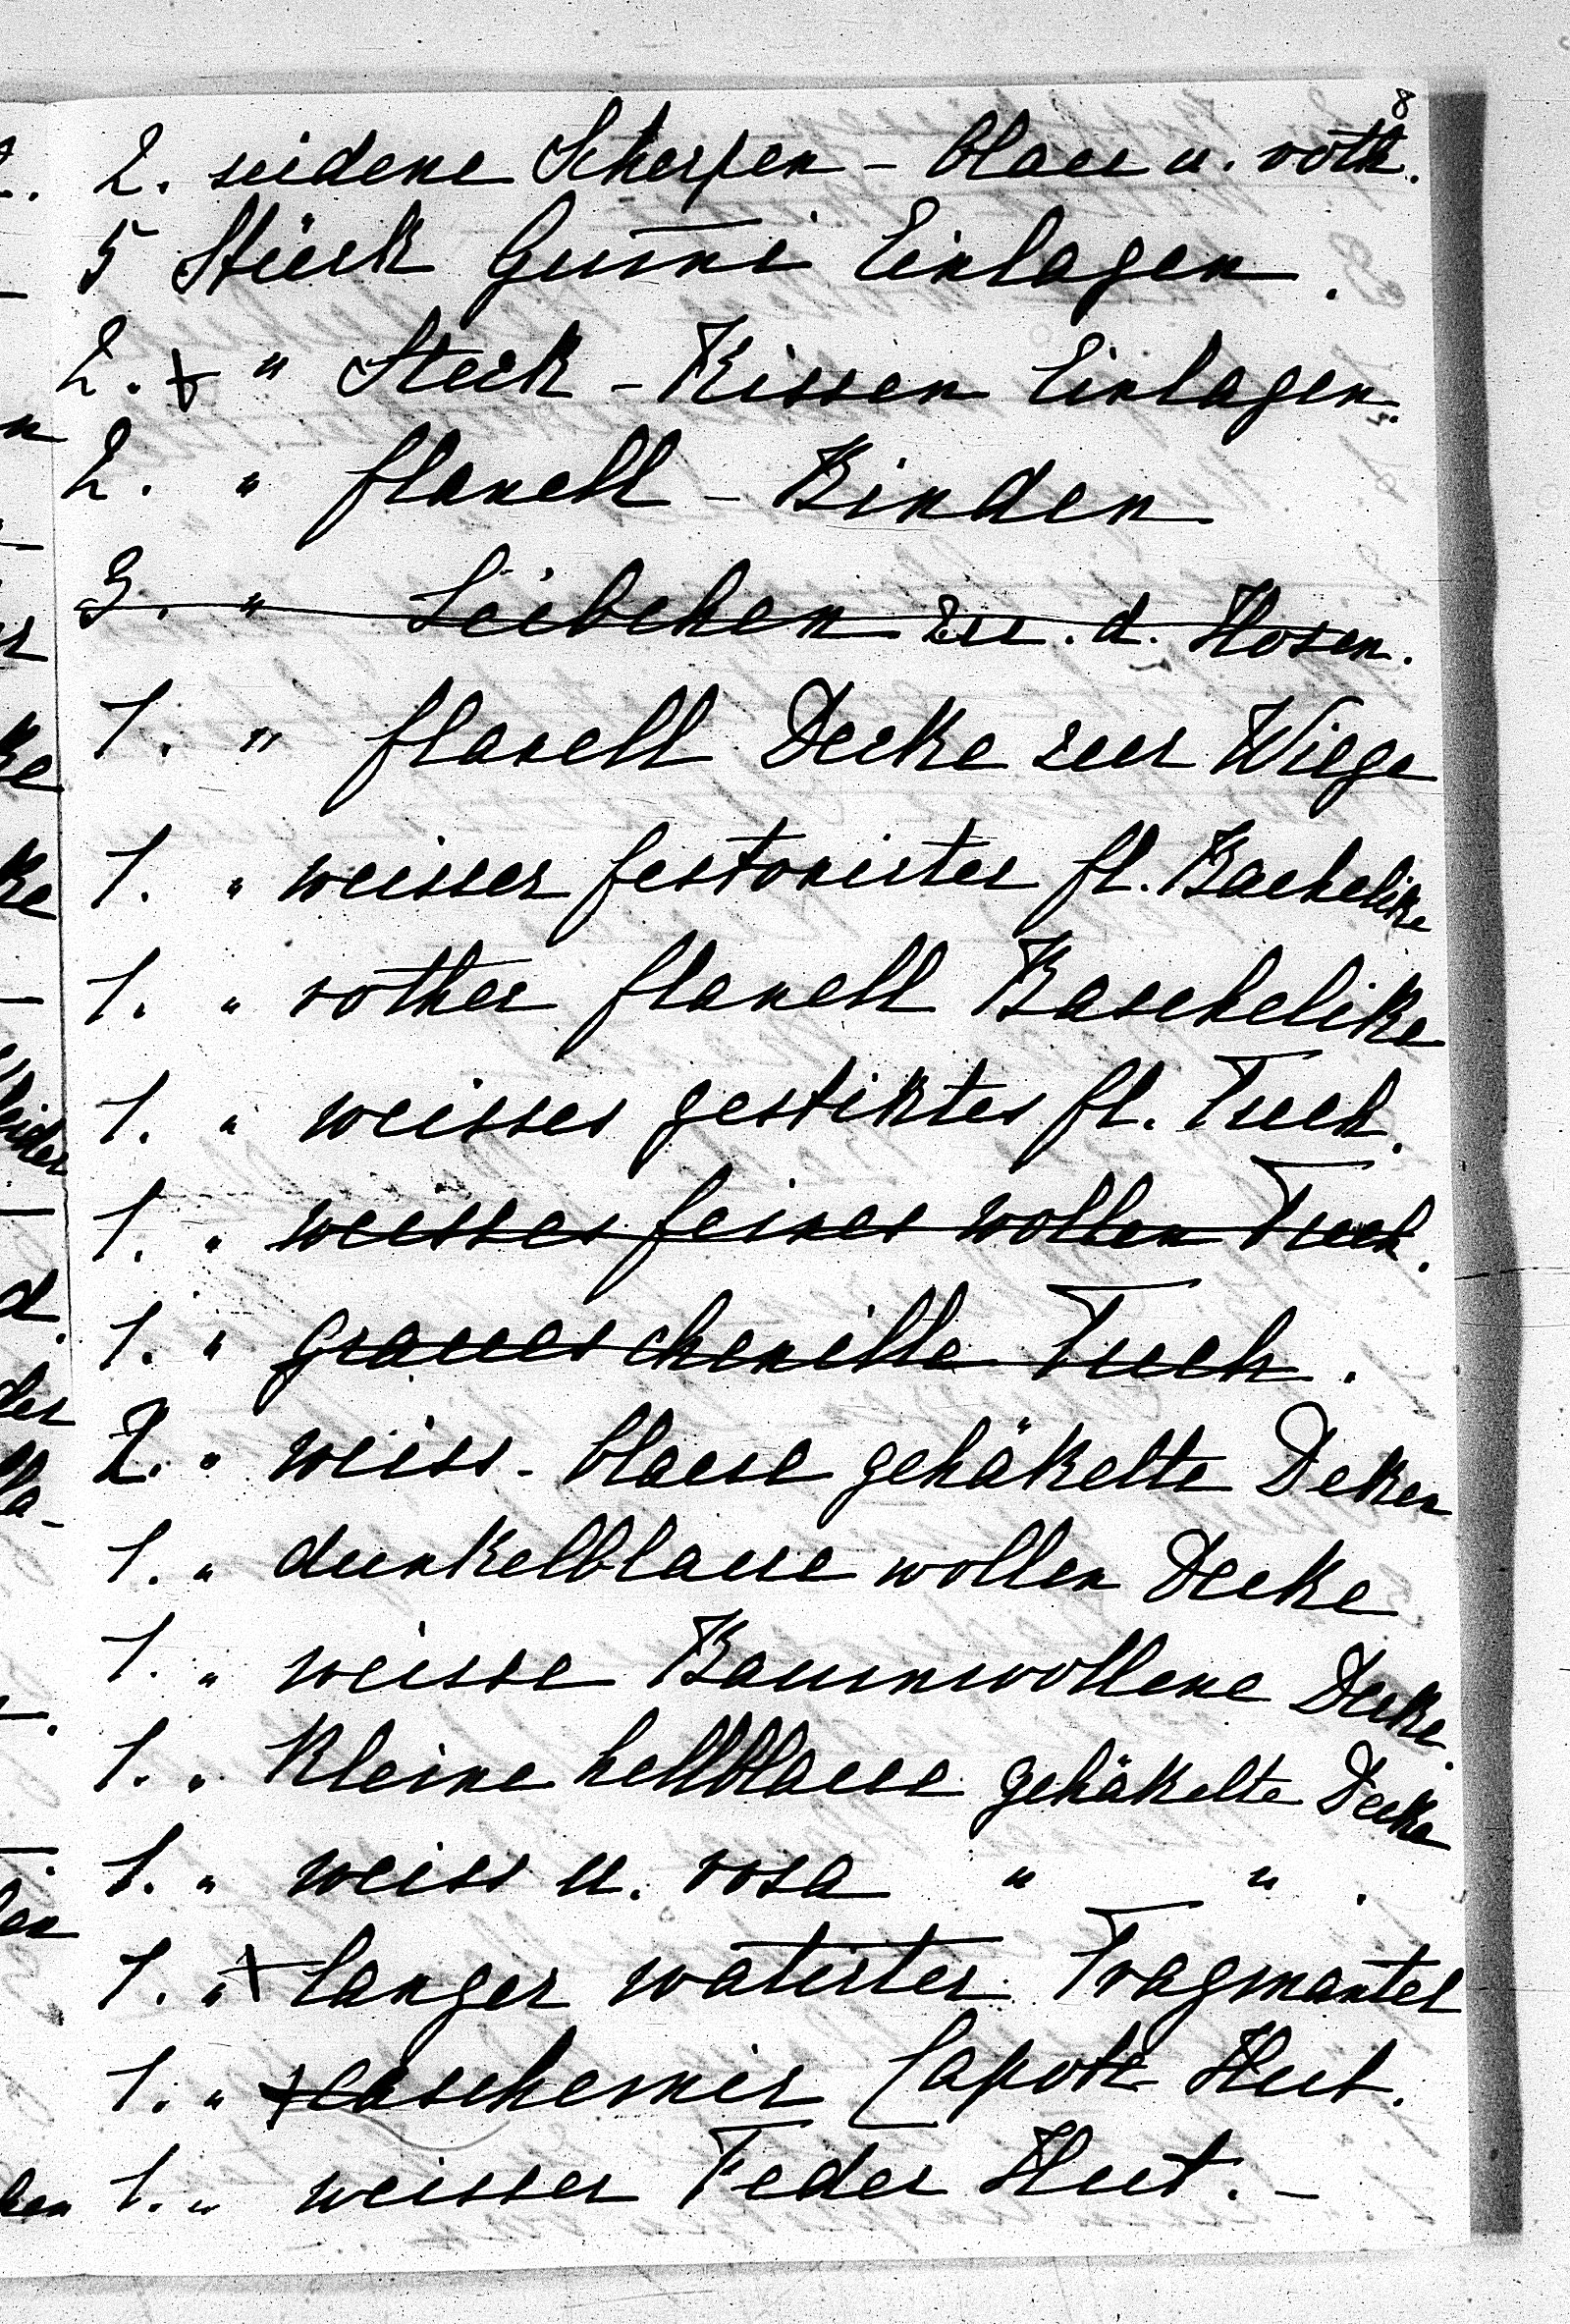 8
2. seidene Scherpen - blau u. roth.
5 Stück Gum̄i Einlagen.
2. + " Steck - Kissen Einlagen.
2. " flanell - Binden
3. " Leibchen zu. d. Hosen.
1. " flanell Decke zur Wiege
1. " weisser festonirter fl. Bachelike
1. " rother flanell Baschelike
1. " weisses gestiktes fl. Tuch.
1. " weisses feines wollen Tuch.
1. " graues chenille Tuch.
2. " weiss - blaue gehäkelte Deken
1. " dunkelblaue wollen Decke
1. " weisse Baumwollene Decke.
1. " Kleine hellblaue gehäkelte Decke
1. " weiss u. rosa " " .
1. " + langer watirter Tragmantel
1. " + caschemir Capote Hut.
1. " weisser Feder Hut. -